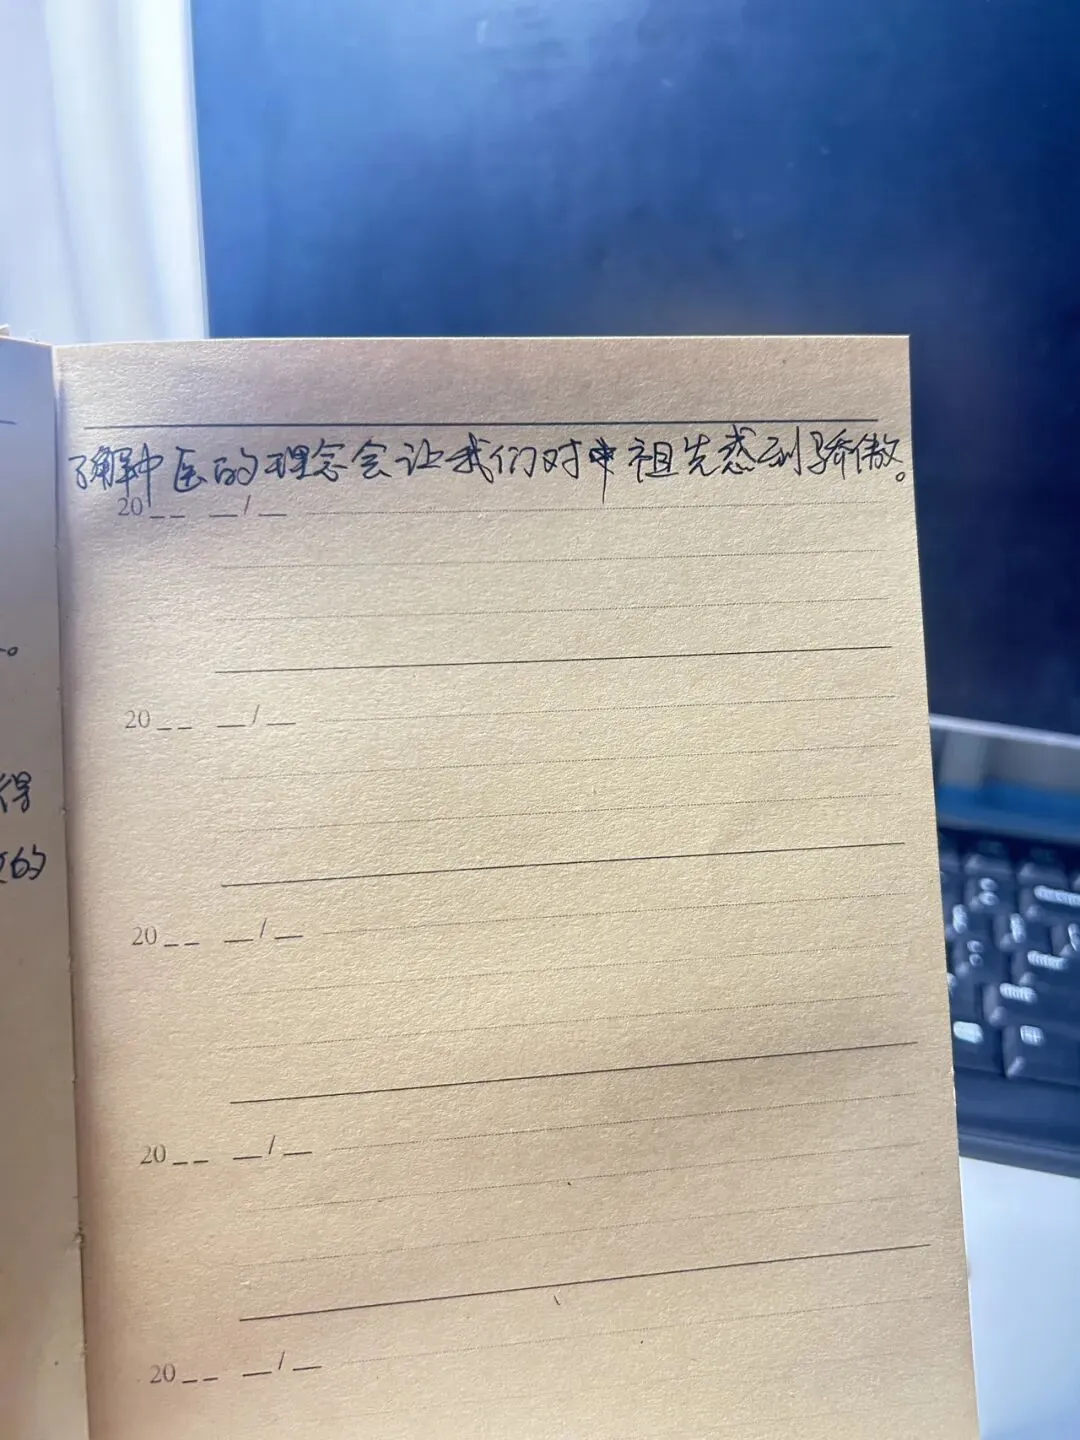 了解中医的理念会让我们对祖先感到骄傲。
20__ __/__
20__ __/__
得
的
20__ __/__
20__ __/__
20__ __/__